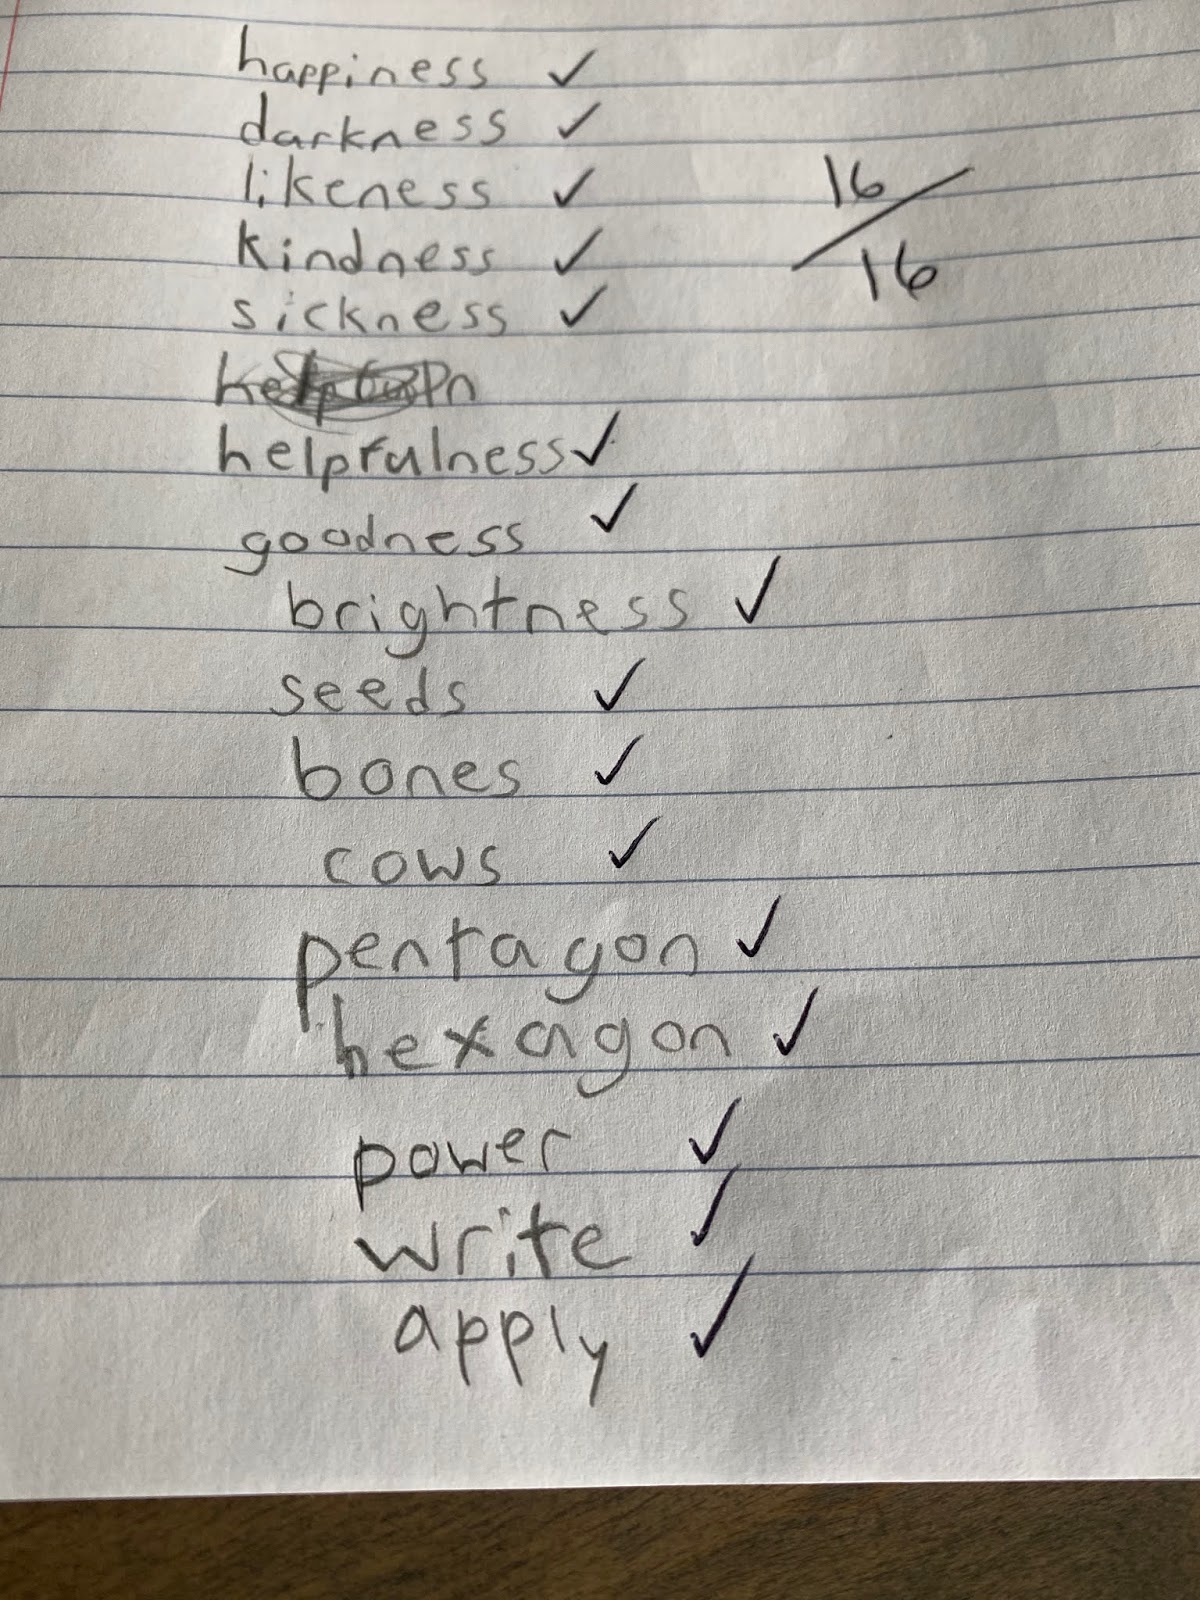 happiness ✓
darkness ✓
likeness ✓ 16/16
kindness ✓
sickness ✓
helpfulness ✓
goodness ✓
brightness ✓
seeds ✓
bones ✓
cows ✓
pentagon ✓
hexagon ✓
power ✓
write ✓
apply ✓